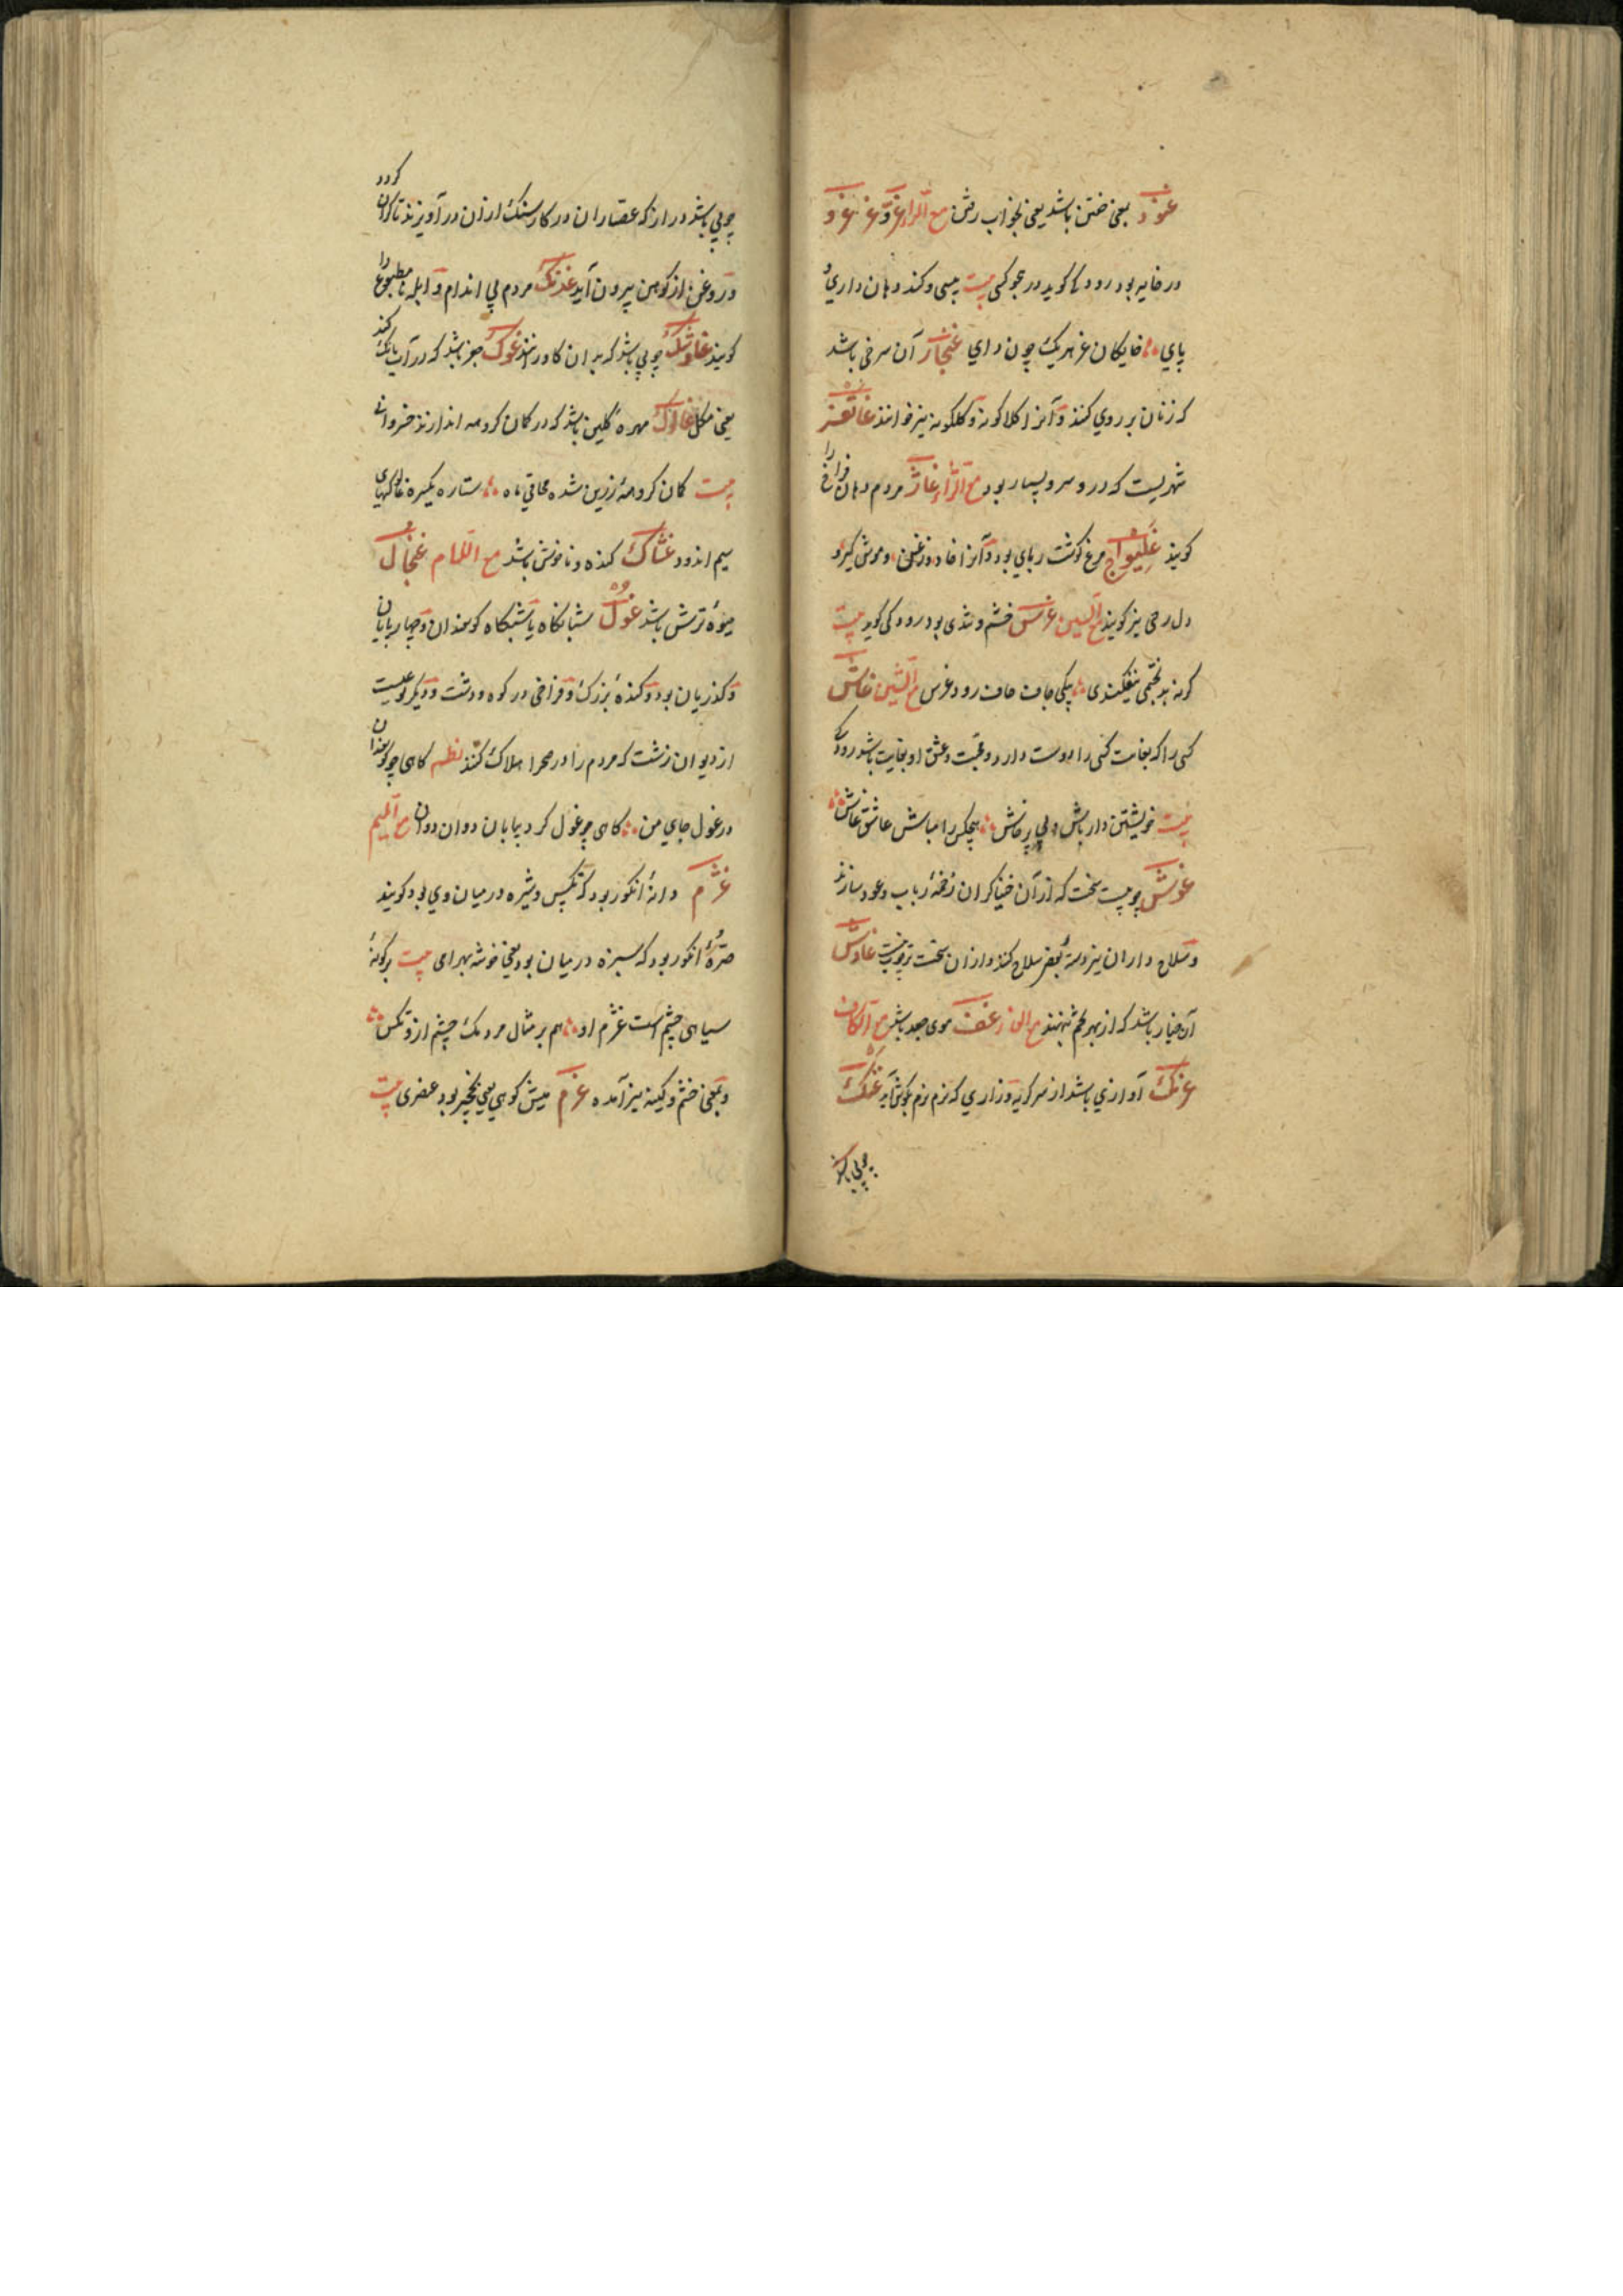 غنود بمعنی خفتن باشد یعنی بخواب رفتن مع الراء غر و غر غرو
در خایه بود رودکی کوید در هجو کسی بیت پیسی و کنده دهان داری و
پای خایکان غر هریک چون درای غنجار آن سرخی باشد
که زنان بر روی کنند و آنرا کلاکونه و کلکونه نیز خوانند غاتفر
شهریست که در و سرو بسیار بود مع الزاء غاز مردم دهان فراخ را
کویند غلیواج مرغ کوشت ربای بود و آنرا خاد و زغن و موش کیر و
نیز کویند مع السین غرس خشم و تندی بود رودکی کوید بیت
کر نه بدبختمی مرا که فکندی بیکی جاف جاف زود غرس مع الشین غاش
کسی را که بغایت کسی را دوست دارد و محبت و عشق او بغایت باشد رودکی
بیت خویشتن دار باش و بی پرخاش هیچکس را مباش عاشق غاش
غوش چوبیست سخت که از آن خنیاکران زخمهٔ رباب و عود سازند
و سلاح داران نیز دستهٔ بعضی سلاح کنند و از آن سخت تر چوب نیست غاوش
آن خیار باشد که از بهر تخم بنهند مع الفاء غف موی جعد باشد مع الکاف
غرنک آوازی باشد از سر کریه و زاری که نرم نرم بکوش آید غنک
چوبی باشد
چوبی باشد دراز که عصاران در کار سنک از آن در آویزند تا کران کردد
و روغن از کوبین بیرون آید غدنک مردم بی اندام و ابله نا مطبوع را
کویند غاوشنک چوبی باشد که بدان کاو رانند غوک جغز باشد که در آب بانک کند
یعنی مکل غالوک مهرهٔ کلین باشد که در کمان کروهه اندازند خسروانی
بیت کمان کروههٔ زرین شده محاقی ماه ستاره یکسره غالوکهای
سیم اندود غشاک کنده و ناخوش باشد مع اللام غنجال
میوهٔ ترش باشد غول شبانکاه یا شبکاه کوسفندان و چهارپایان
و کنده بزرک و فراخی در کوه و دشت و دیکر نوعیست
از دیوان زشت که مردم را در صحرا هلاک کنند نظم کاهی چو کوسفندان
در غول جای من کاهی چو غول کرد بیابان دوان دوان مع المیم
غژم دانهٔ انکور بود که تکس و شیره در میان وی بود کویند
انکور بود که سبزه در میان بود یعنی خوشه بهرامی بیت برکونهٔ
سیاهی چشم است غژم او هم بر مثال مردمک چشم از و تکس
و بمعنی خشم و کینه نیز آمده غرم میش کوهی یعنی نخجیر بود عنصری بیت